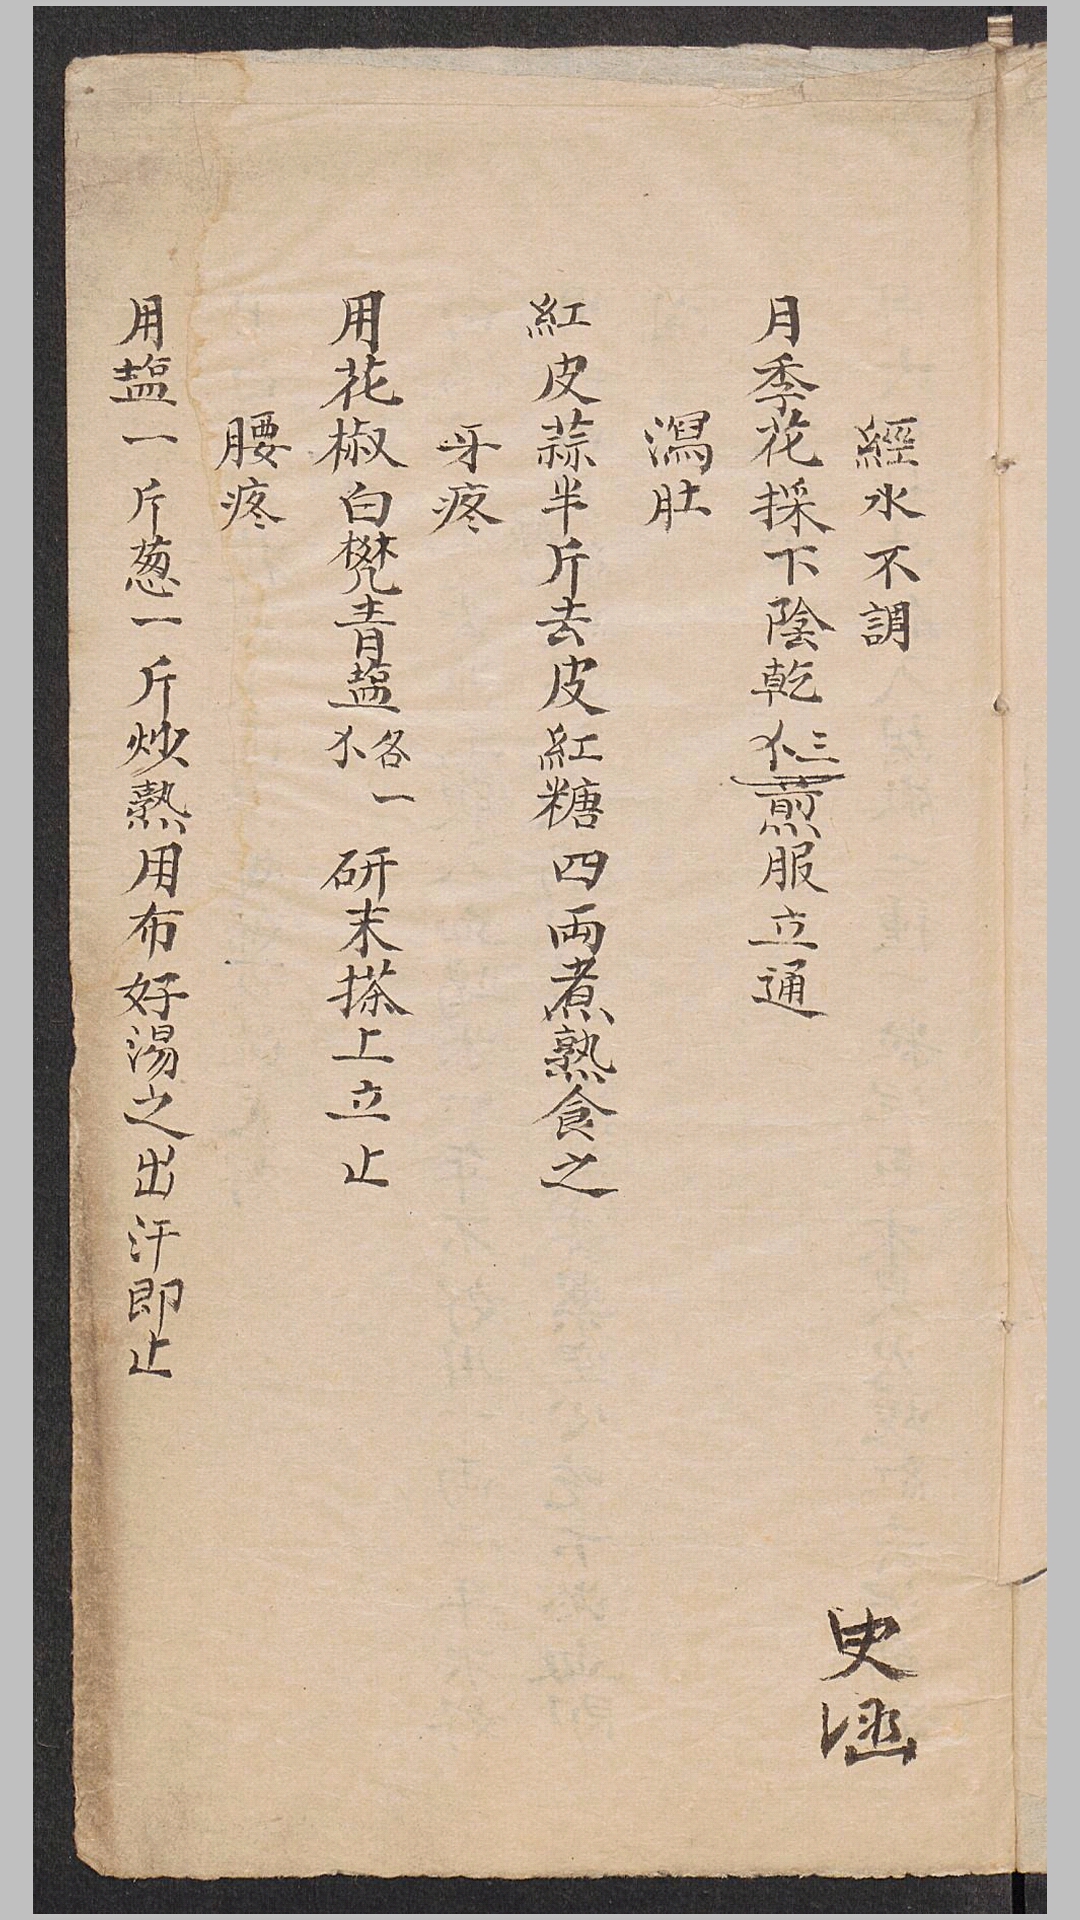 經水不調
月季花採下陰乾三个煎服立通
瀉肚
紅皮蒜半斤去皮紅糖四両煮熟食之
牙疼
用花椒白礬青塩各一个研末搽上立止
腰疼
用塩一斤葱一斤炒熱用布好湯之出汗即止
史